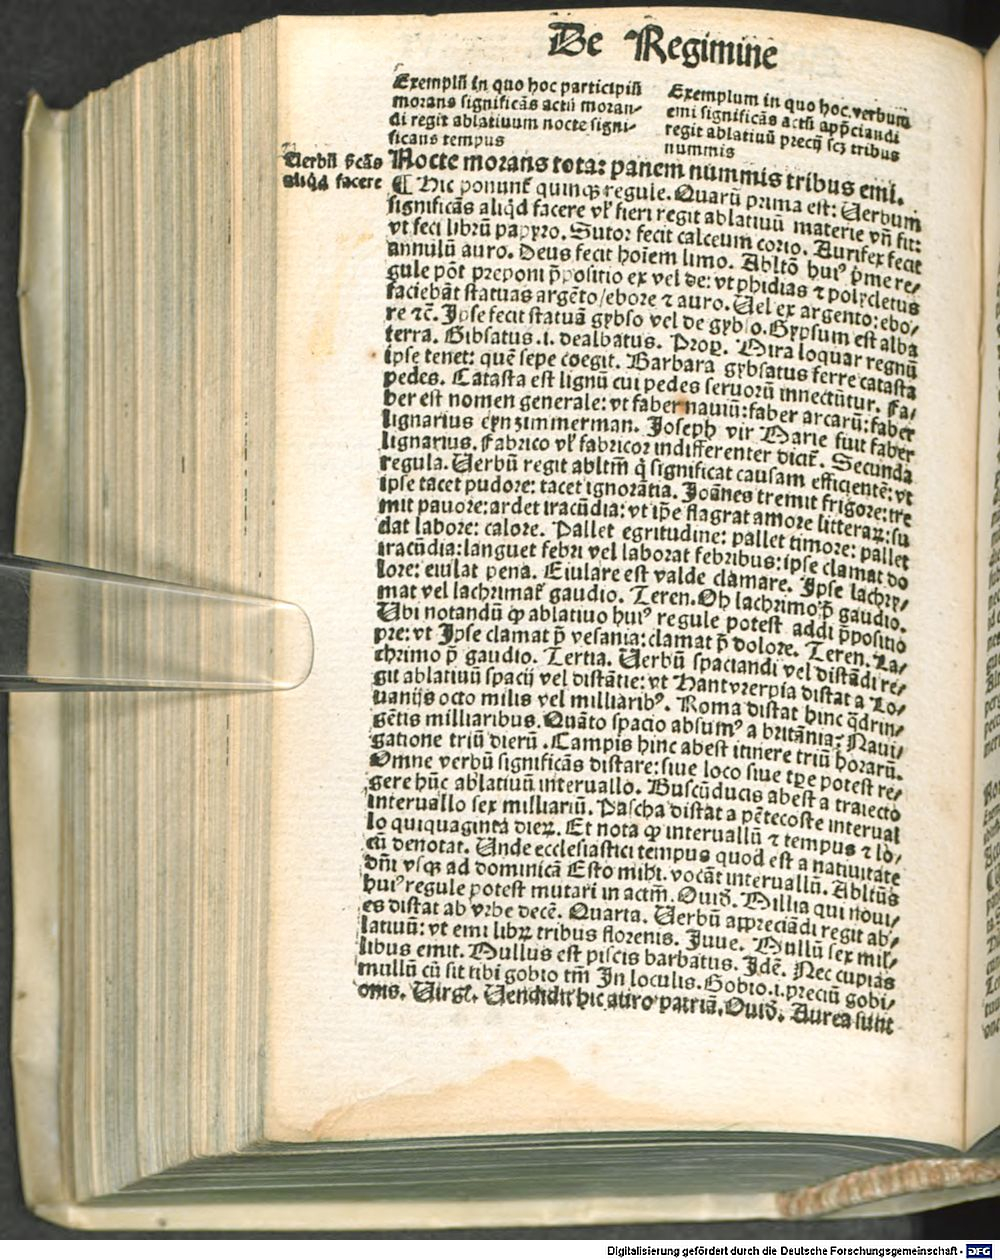 De Regimine
Exemplũ in quo hoc participiũ
morans significãs actũ moran-
di regit ablatiuum nocte signi-
ficans tempus
Exemplum in quo hoc verbum
emi significãs actũ app̃ciandi
regit ablatiuũ precij scꝫ tribus
nummis
Uerbũ s̃cãs
aliq̃d facere
Nocte morans tota: panem nummis tribus emi.
¶ Hic ponunt̃ quinqꝫ regule. Quarũ prima est: Uerbum
significãs aliq̃d facere vl̃ fieri regit ablatiuũ materie vñ fit:
vt feci librũ papyro. Sutor fecit calceum corio. Aurifex fecit
annulũ auro. Deus fecit hoĩem limo. Abltõ huiꝰ p̃me re/
gule põt preponi p̃positio ex vel de: vt phidias ⁊ polycletus
faciebãt statuas argẽto/ebore ⁊ auro. Uel ex argento: ebo/
re ⁊c̃. Ipse fecit statuã gybso vel de gybso. Gypsum est alba
terra. Gibsatus .i. dealbatus. Prop. Mira loquar regnũ
ipse tenet: quẽ sepe coegit. Barbara gybsatus ferre catasta
pedes. Catasta est lignũ cui pedes seruorũ innectũtur. Fa/
ber est nomen generale: vt faber nauiũ: faber arcarũ: faber
lignarius eyn zimmerman. Joseph vir Marie fuit faber
lignarius. Fabrico vl̃ fabricor indifferenter dicit̃. Secunda
regula. Uerbũ regit abltm̃ q̃ significat causam efficientẽ: vt
ipse tacet pudore: tacet ignorãtia. Joãnes tremit frigore: tre
mit pauore: ardet iracũdia: vt ip̃e flagrat amore litteraꝝ: su
dat labore: calore. Pallet egritudine: pallet timore: pallet
iracũdia: languet febri vel laborat febribus: ipse clamat do
lore: eiulat pena. Eiulare est valde clamare. Ipse lachry/
mat vel lachrimat̃ gaudio. Teren. Oh lachrimo p̃ gaudio.
Ubi notandũ ꝙ ablatiuo huiꝰ regule potest addi p̃positio
pre: vt Ipse clamat p̃ vesania: clamat p̃ dolore. Teren. La/
chrimo p̃ gaudio. Tertia. Uerbũ spaciandi vel distãdi re/
git ablatiuũ spacij vel distãtie: vt Hantvrerpia distat a Lo/
uanijs octo milis vel milliaribꝰ. Roma distat hinc q̃drin/
gẽtis milliaribus. Quãto spacio absumꝰ a britãnia? Naui/
gatione triũ dierũ. Campis hinc abest itinere triũ horarũ.
Omne verbũ significãs distare: siue loco siue tp̃e potest re/
gere hũc ablatiuũ interuallo. Buscũducis abest a traiecto
interuallo sex milliariũ. Pascha distat a pẽtecoste interual
lo quiquaginta dieꝝ. Et nota ꝙ interuallũ ⁊ tempus ⁊ lo/
cũ denotat. Unde ecclesiastici tempus quod est a natiuitate
dñi vsqꝫ ad dominicã Esto mihi. vocãt interuallũ. Abltũs
huiꝰ regule potest mutari in actm̃. Ouid̃. Millia qui noui/
es distat ab vrbe decẽ. Quarta. Uerbũ appreciãdi regit ab/
latiuũ: vt emi librꝝ tribus florenis. Juue. Mullũ sex mil/
libus emit. Mullus est piscis barbatus. Idẽ. Nec cupias
mullũ cũ sit tibi gobio tm̃ In loculis. Gobio .i. preciũ gobi/
onis. Uirgl̃. Uendidit hic auro patriã. Ouid̃. Aurea sunt
Digitalisierung gefördert durch die Deutsche Forschungsgemeinschaft - DFG